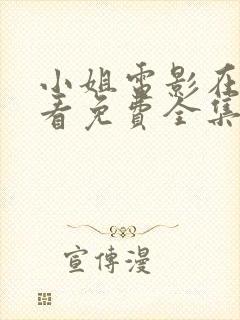 小姐雷影在
看免費全集
宣傳漫